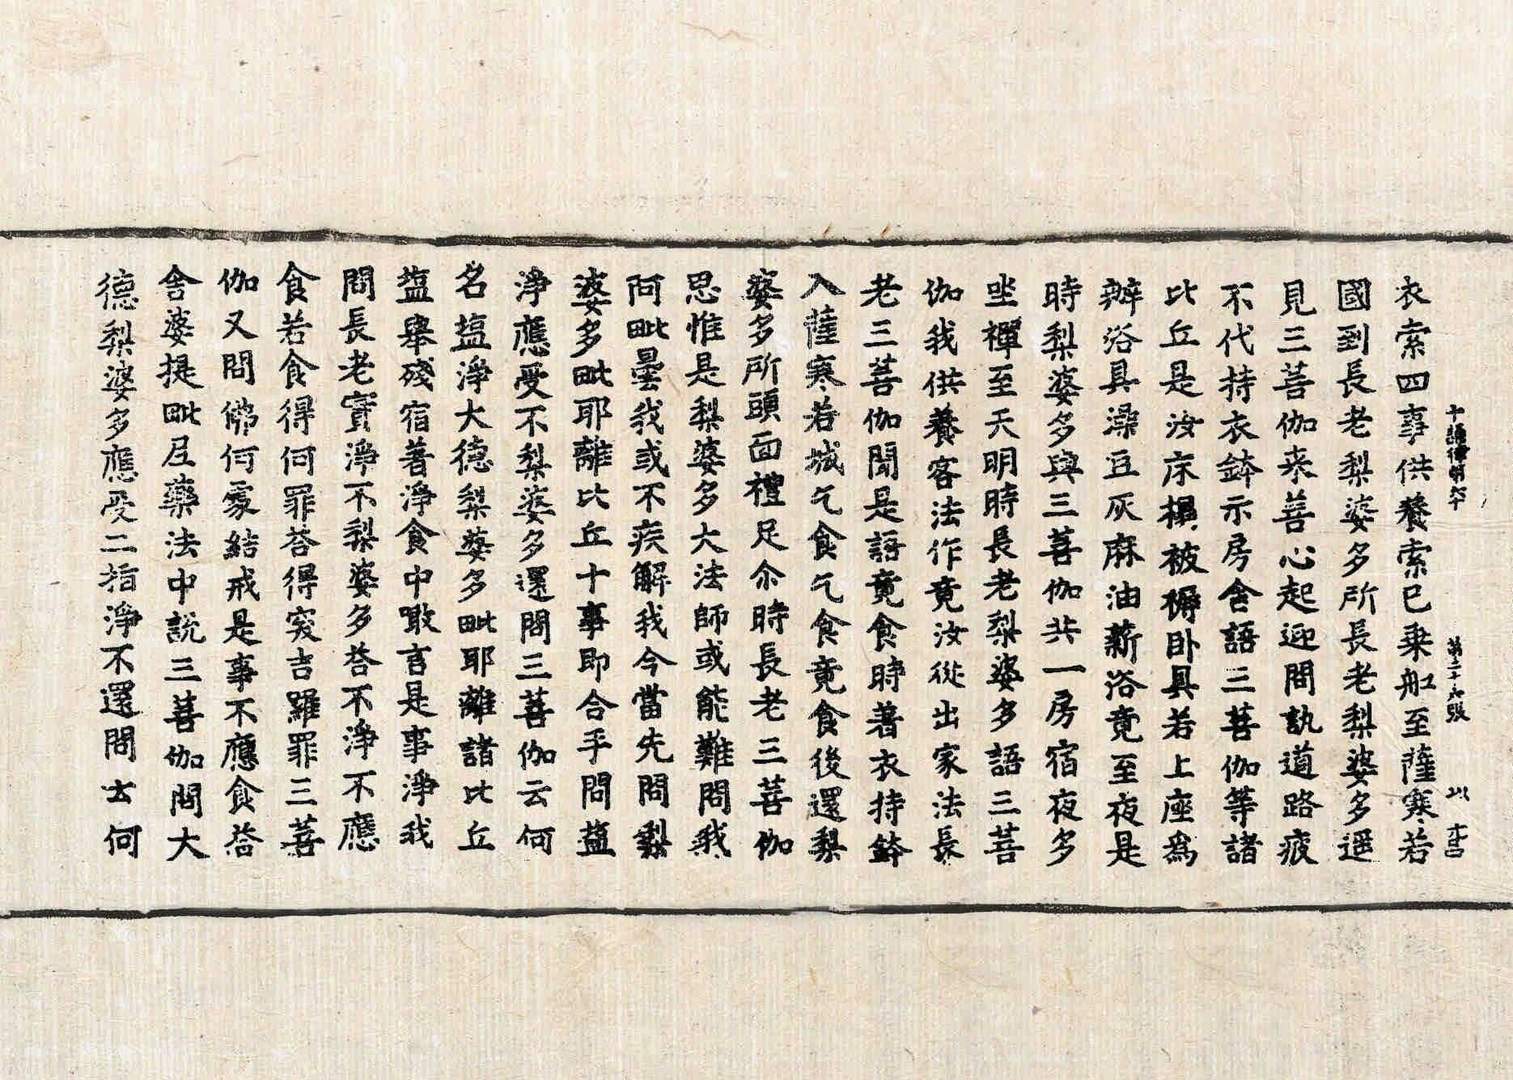 十誦律第六十 第二十六張
衣索四事供養索已乘舡至薩寒若
國到長老梨婆多所長老梨婆多遥
見三菩伽来善心起迎問訊道路疲
不代持衣鉢示房舍語三菩伽等諸
比丘是汝床榻被褥卧具若上座為
辦浴具澡豆灰麻油薪浴竟至夜是
時梨婆多與三菩伽共一房宿夜多
坐禪至天明時長老梨婆多語三菩
伽我供養客法作竟汝從出家法長
老三菩伽聞是語竟食時著衣持鉢
入薩寒若城乞食乞食竟食後還梨
婆多所頭面禮足尒時長老三菩伽
思惟是梨婆多大法師或能難問我
阿毗曇我或不疾解我今當先問梨
婆多毗耶離比丘十事即合手問塩
淨應受不梨婆多還問三菩伽云何
名塩淨大德梨婆多毗耶離諸比丘
塩舉殘宿著淨食中噉言是事淨我
問長老實淨不梨婆多荅不淨不應
食若食得何罪荅得突吉羅罪三菩
伽又問佛何處結戒是事不應食荅
舍婆提毗尼藥法中説三菩伽問大
德梨婆多應受二指淨不還問云何